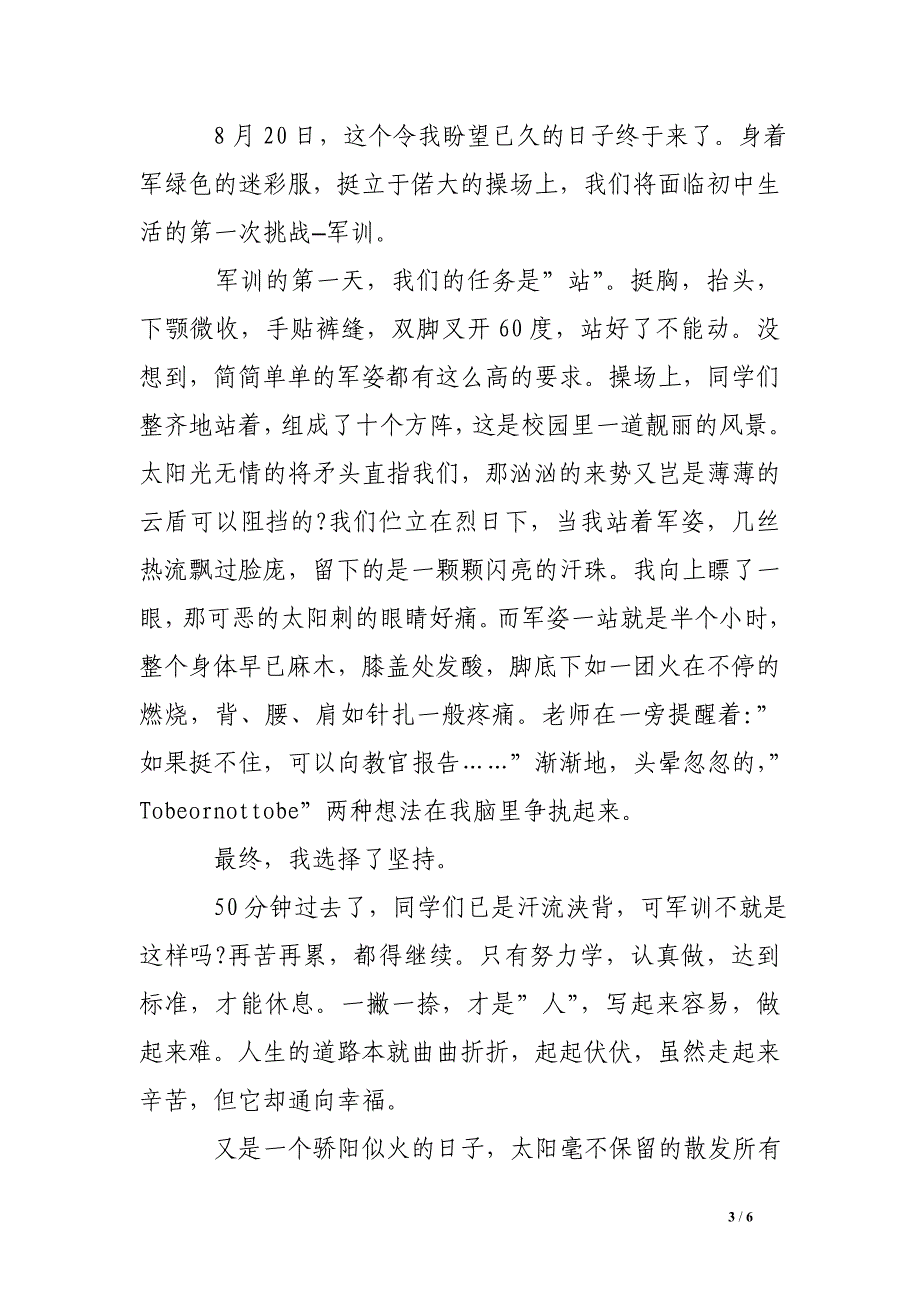 8月20日，这个令我盼望已久的日子终于来了。身着
军绿色的迷彩服，挺立于偌大的操场上，我们将面临初中生
活的第一次挑战—军训。
军训的第一天，我们的任务是”站”。挺胸，抬头，
下颚微收，手贴裤缝，双脚叉开60度，站好了不能动。没
想到，简简单单的军姿都有这么高的要求。操场上，同学们
整齐地站着，组成了十个方阵，这是校园里一道靓丽的风景。
太阳光无情的将矛头直指我们，那汹汹的来势又岂是薄薄的
云盾可以阻挡的?我们伫立在烈日下，当我站着军姿，几丝
热流飘过脸庞，留下的是一颗颗闪亮的汗珠。我向上瞟了一
眼，那可恶的太阳刺的眼睛好痛。而军姿一站就是半个小时，
整个身体早已麻木，膝盖处发酸，脚底下如一团火在不停的
燃烧，背、腰、肩如针扎一般疼痛。老师在一旁提醒着:”
如果挺不住，可以向教官报告……”渐渐地，头晕忽忽的，”
Tobeornottobe”两种想法在我脑里争执起来。
最终，我选择了坚持。
50分钟过去了，同学们已是汗流浃背，可军训不就是
这样吗?再苦再累，都得继续。只有努力学，认真做，达到
标准，才能休息。一撇一捺，才是”人”，写起来容易，做
起来难。人生的道路本就曲曲折折，起起伏伏，虽然走起来
辛苦，但它却通向幸福。
又是一个骄阳似火的日子，太阳毫不保留的散发所有
3 / 6